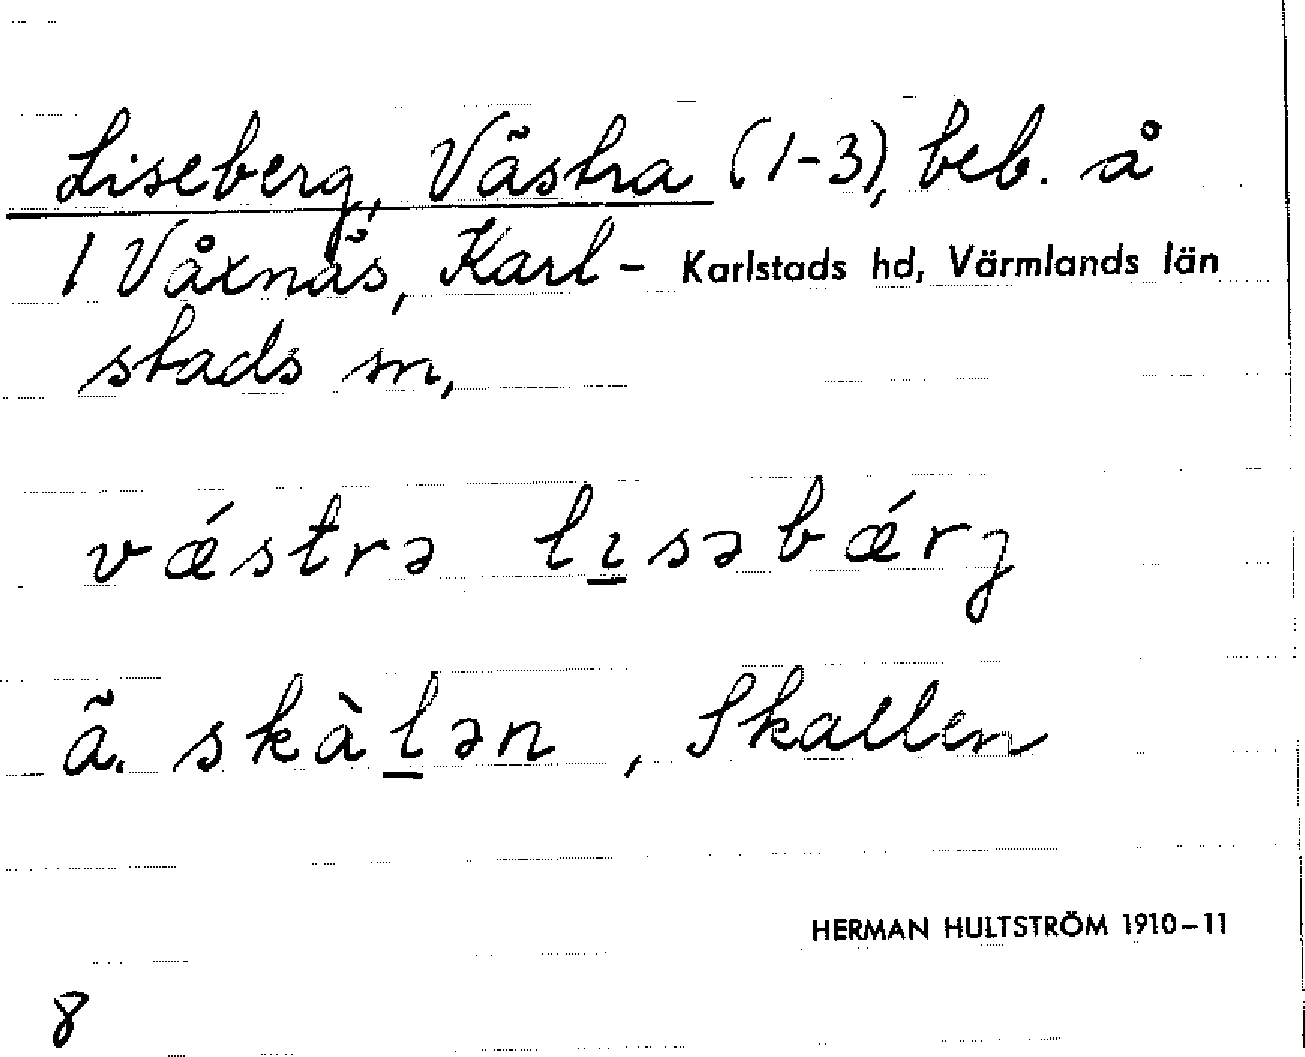 Liseberg, Västra (1-3), beb. å
1 Våxnäs, Karl- Karlstads hd, Värmlands län
stads sn,
vǽstrə lɩ̱səbǽrj
ã. skàḻən, Skallen
HERMAN HULTSTRÖM 1910–11
8